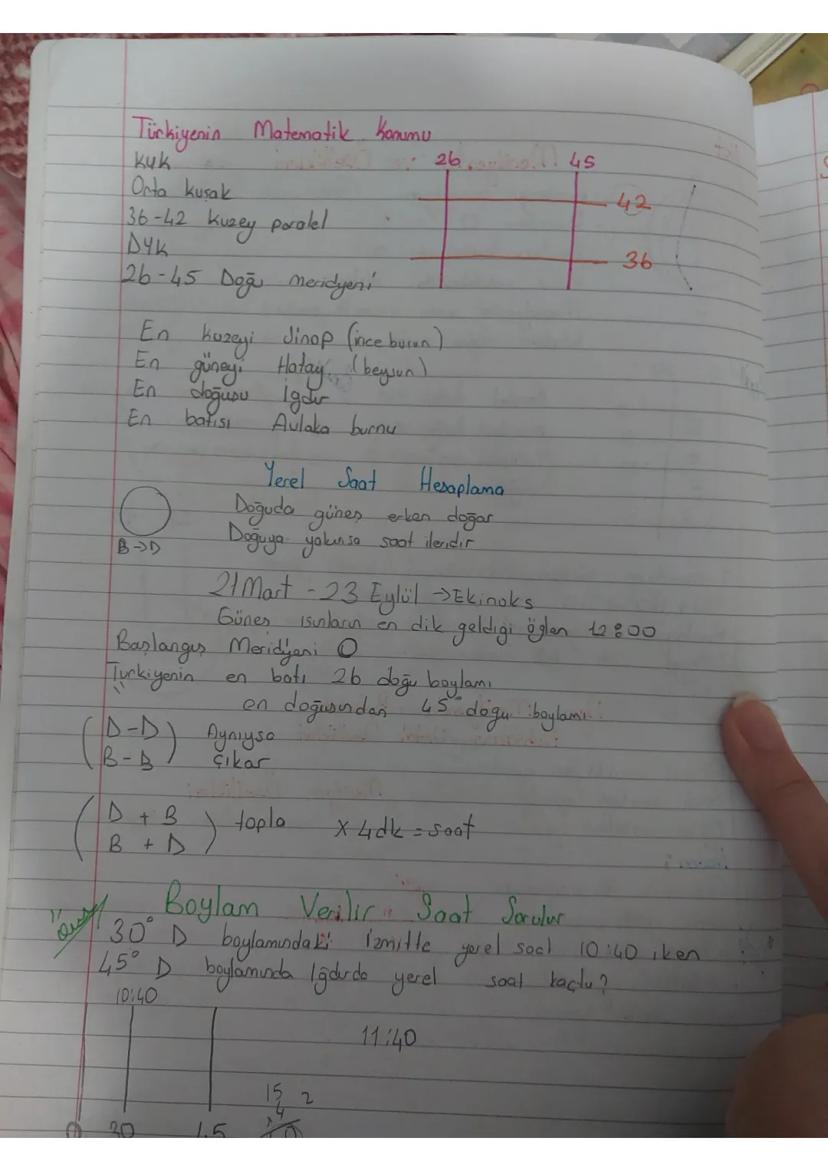 Türkiyenin Matematik Konumu
KYK
Orta kuşak
36-42 kuzey paralel
DYK
26-45 Doğu meridyeni
26 45
42
36
En kuzeyi Sinop (ince burun)
En güneyi Hatay (beysun)
En doğusu Iğdır
En batısı Avlaka burnu
Yerel Saat Hesaplama
Doğuda güneş erken doğar
B→D Doğuya yakınsa saat ileridir
21 Mart - 23 Eylül →Ekinoks
Güneş ışınların en dik geldiği öğlen 12:00
Başlangış Meridyeni O
Türkiyenin en batı 26 doğu boylamı
en doğusundan 45° doğu boylamı
(D-D) Aynıysa
(B-B) Çıkar
(D + B) topla x 4dk = saat
(B + D)
Boylam Verilir Saat Sorulur
30° D boylamındaki İzmitte yerel saat 10:40 iken
45° D boylamında Iğdırda yerel saat kaçtır?
10:40
11:40
15 2
4
0 30 45